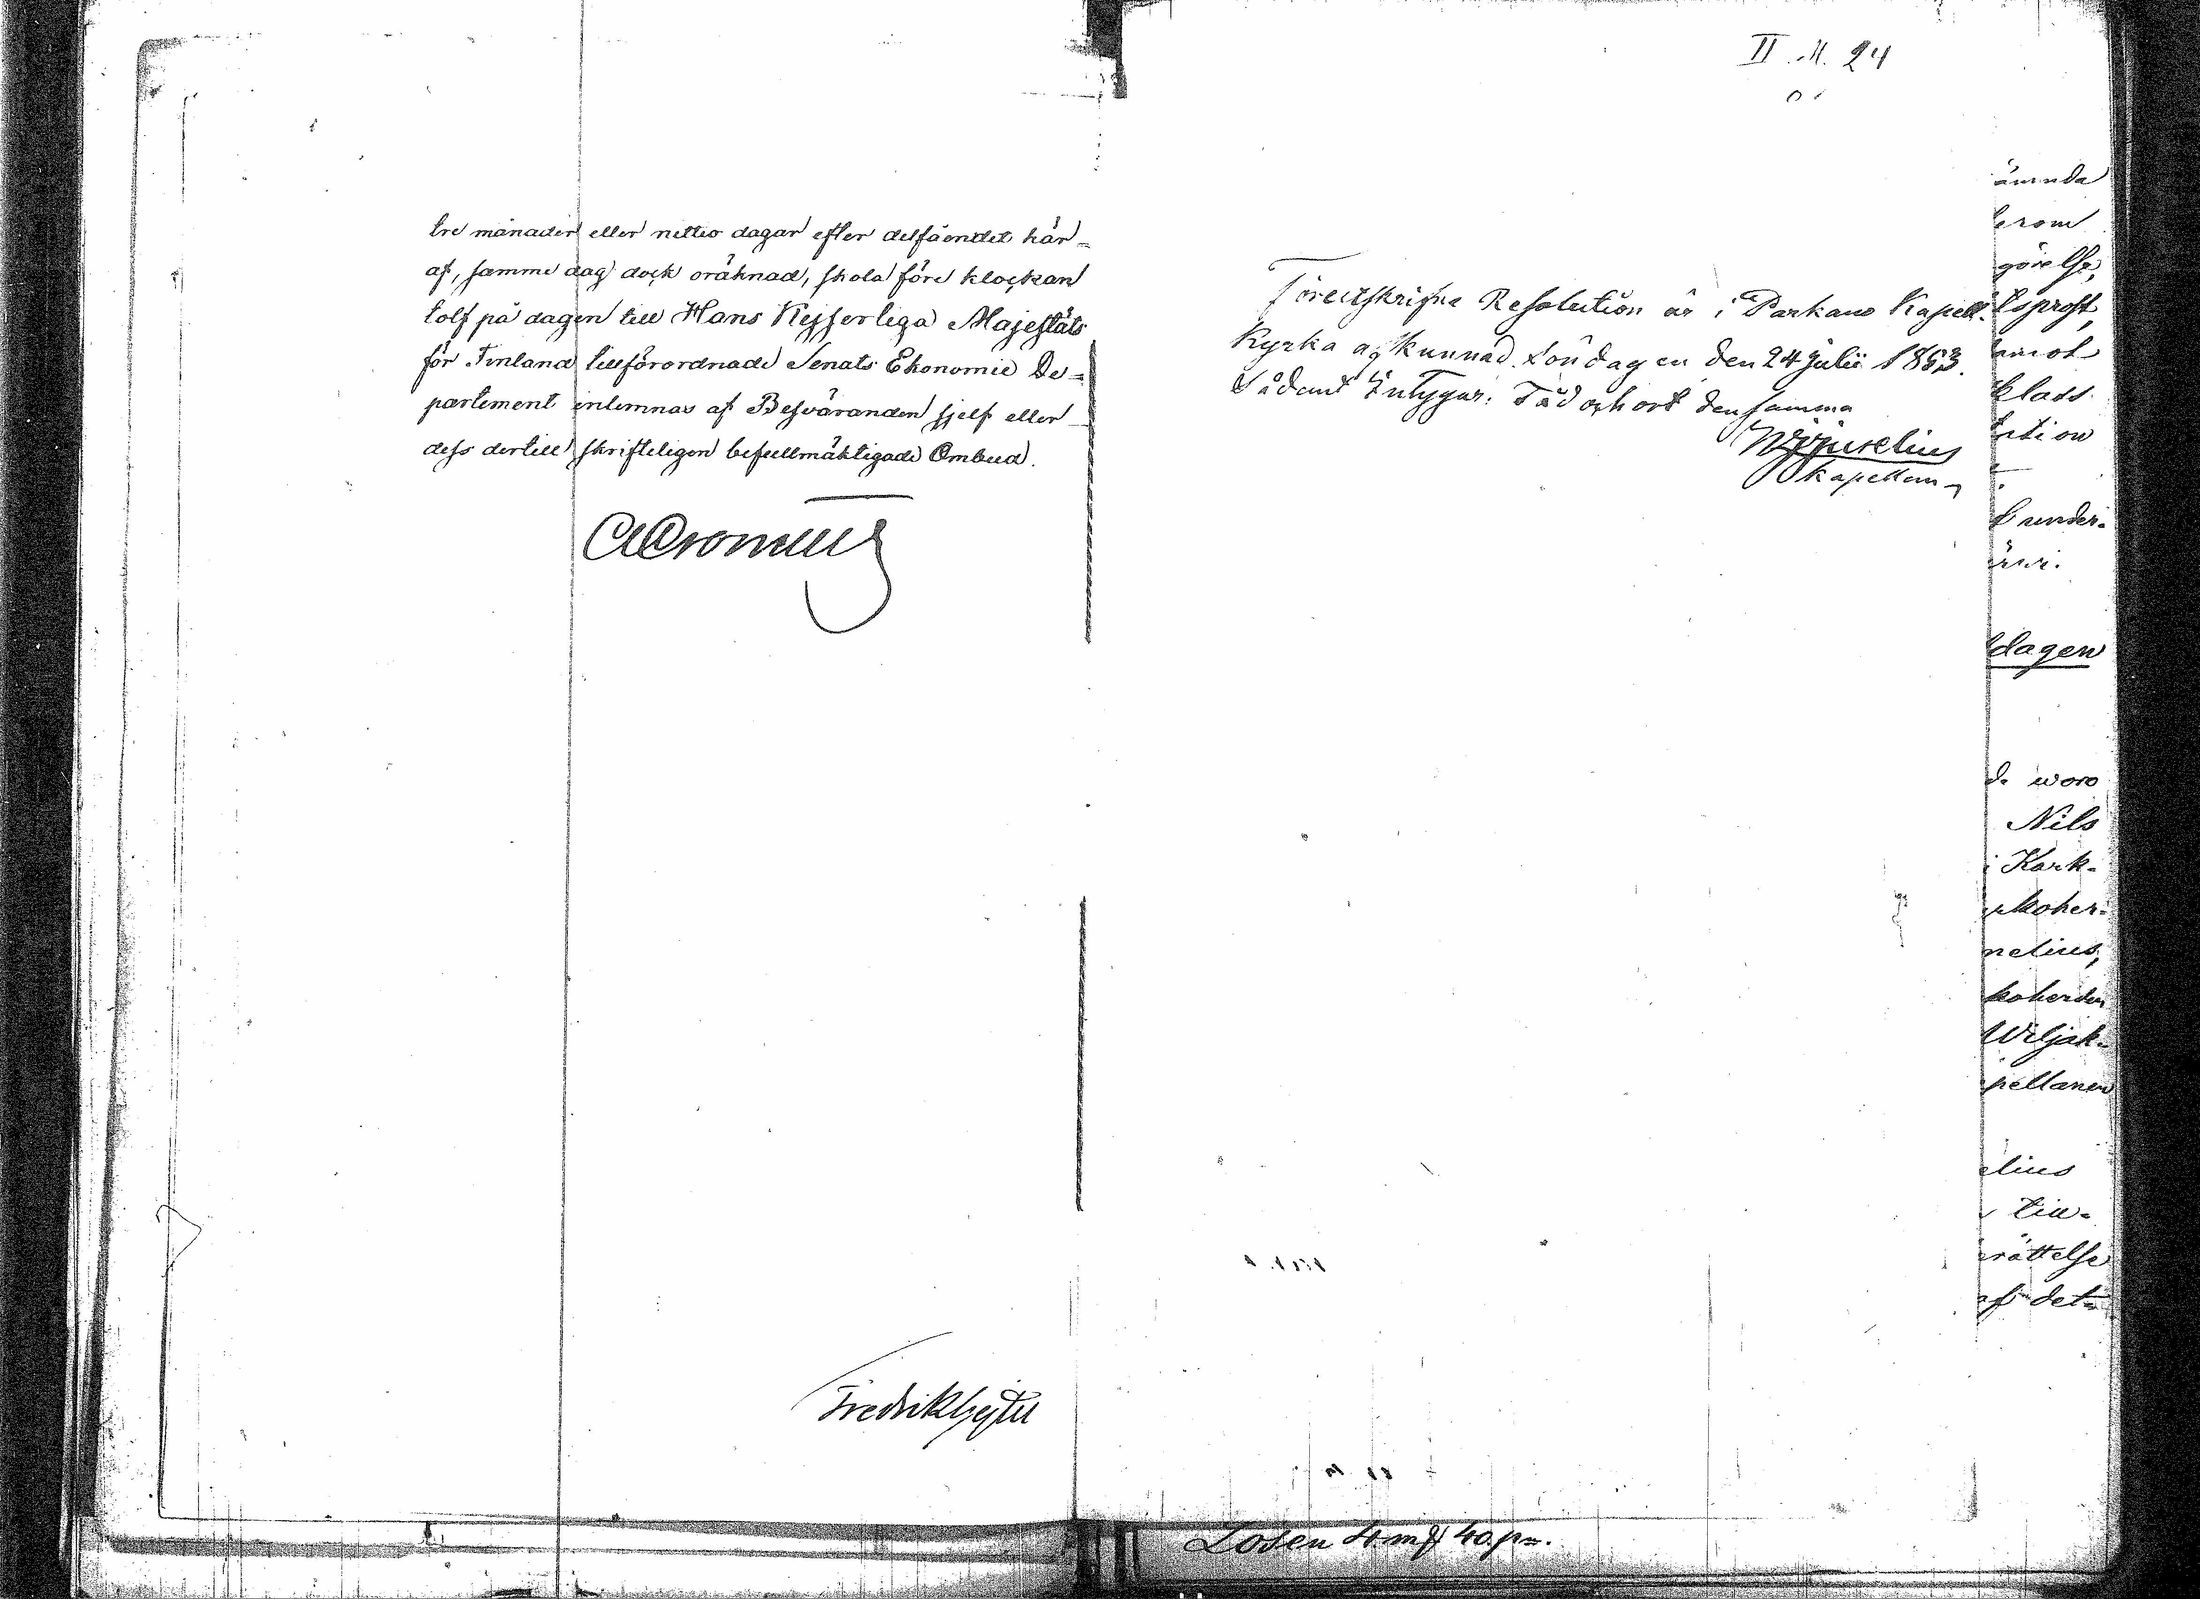 tre månader eller nittio dagar efter delfåendet här-
af, samme dag dock oräknad, skola före klockan
tolf på dagen till Hans Kejserliga Majestäts
för Finland tillförordnade Senats Ekonomie De-
partement inlemnas af Besväranden sjelf eller
dess dertill skrifteligen befullmäktigade Ombud.
Fredrik Hejtel
II. M. 24
Föreitskrifne Resolution är i Parkano Kapell-
Kyrka afkunnad Söndagen den 24 Julii 1853.
Sådant Intygar. Tid och ort densamma
Kapellan
ämnda
erom
görelse,
tsprost,
emot
klass
ution
under-
dagen
woro
Nils
i Kark-
rkoher-
nelius,
koherden
Wiljak-
pellanen
elius
till-
rättelse
af det-
Losen 4 mk 40 pi.